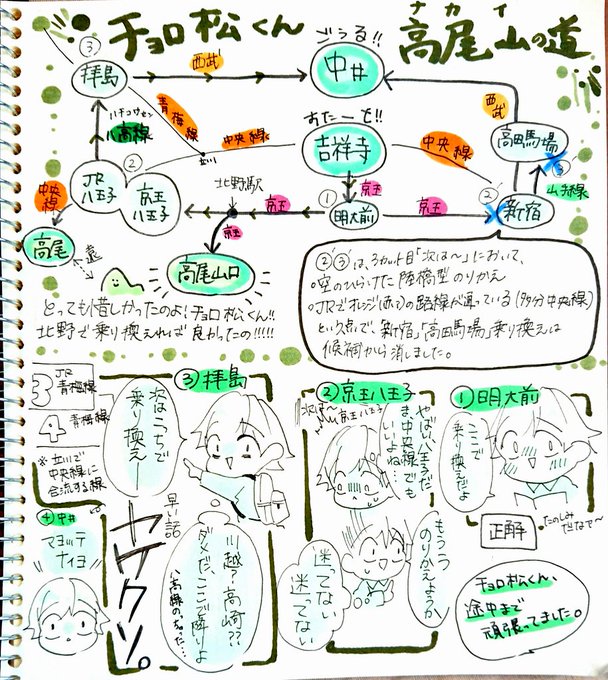 チョロ松くん 高尾山の道
ナカイ
ごぅる!!
中井
西武
③
拝島
青梅線
立川
八高線
ハチコウセン
中央線
おたーと!!
吉祥寺
中央線
西武
高田馬場
③'
山手線
②'
新宿
京王
①
明大前
京王
京王
北野駅
②
JR八王子
京王八王子
中央線
高尾
遠
京王
高尾山口
とっても惜しかったのよ!チョロ松くん!!
北野で乗り換えれば良かったの!!!!!
②'③'は、3カット目「次は〜」において、
。空のひらけた陸橋型ののりかえ
。JRでオレンジ(赤?)の路線が通っている(多分中央線)
という点で、「新宿」「高田馬場」乗り換えは
候補から消しました。
①明大前
ここで
乗り換えだよ
正解
たのしみだなぁ〜
チョロ松くん、
途中まで
頑張ってました。
②京王八王子
次は〜
京王八王子
やばい八王子だ…
ま、中央線でも
いいよね…
もう1つ
のりかえようか
迷ってない
迷ってない
③拝島
次はこっちで
乗り換えー
川越?高崎??
ダメだ、ここで降りよ
3 JR青梅線
4 青梅線
※立川で
中央線に
合流する線
早い話
ヤケクソ。
④中井
マヨッテ
ナイヨ